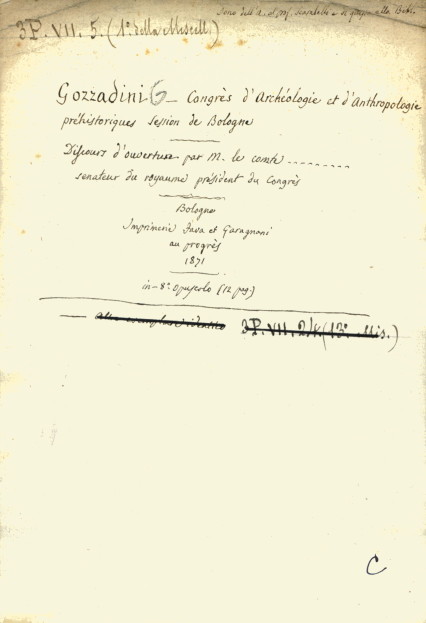 Dono dell'A. al prof. Scarabelli e di questo alla Bibl.
3P. VII. 5. (1º della Miscell.)
Gozzadini G — Congrès d'Archéologie et d'Anthropologie
préhistoriques Session de Bologne
Discours d'ouverture par M. le comte
senateur du royaume président du Congrès
Bologne
Imprimerie Fava et Garagnani
au progrès
1871
in-8º Opuscolo (12 pag.)
3P. VII. 2/4. (13º Mis.)
C